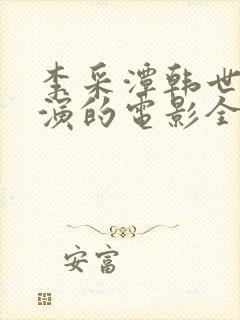 李采潭韩世
演的电影全
安富